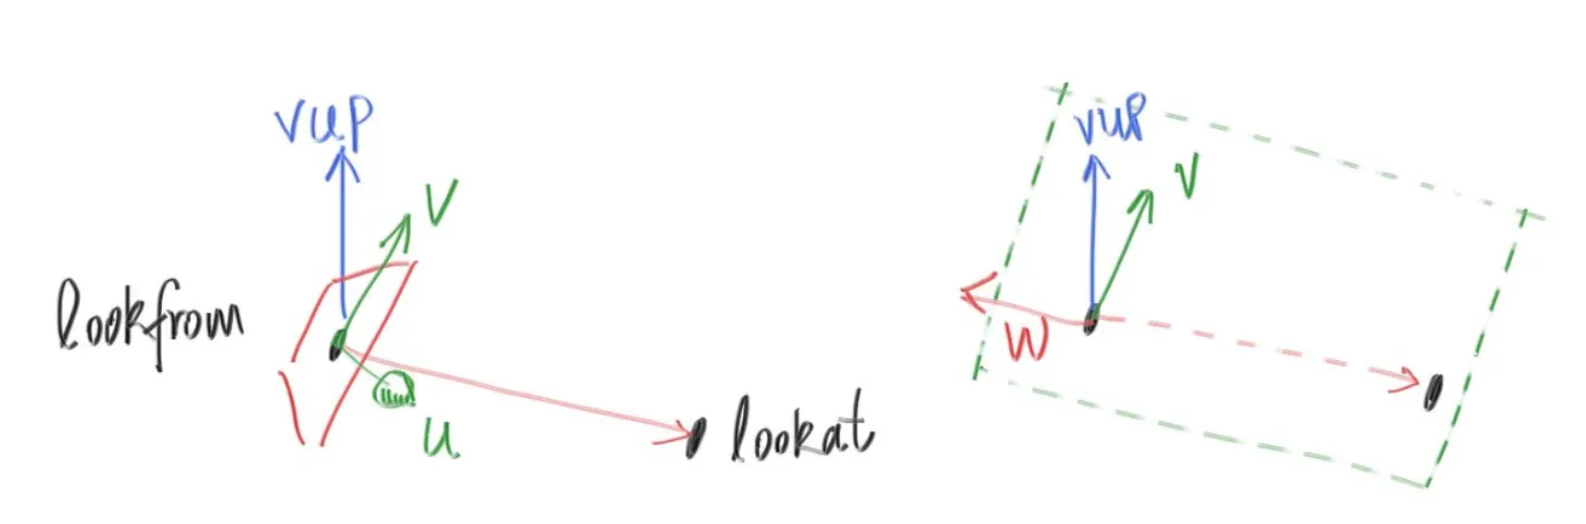 vup
V
lookfrom
u
lookat
vup
V
W